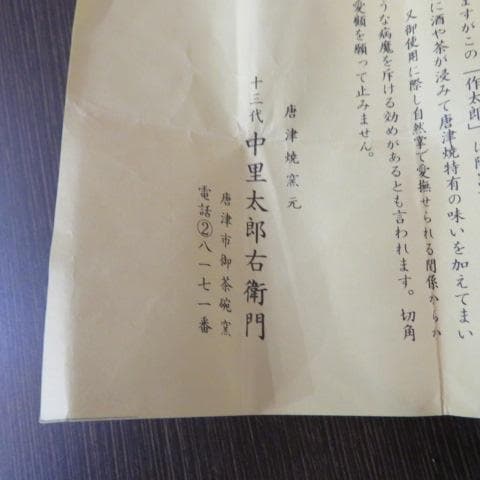 ますがこの「作太郎」は
に酒や茶が浸みて唐津焼特有の味いを加えてまい
又御使用に際し自然掌で愛撫せられる関係からか
うな病魔を斥ける効めがあるとも言われます。切角
愛顧を願って止みません。
唐津焼窯元
十三代 中里太郎右衛門
唐津市御茶碗窯
電話②八一七一番